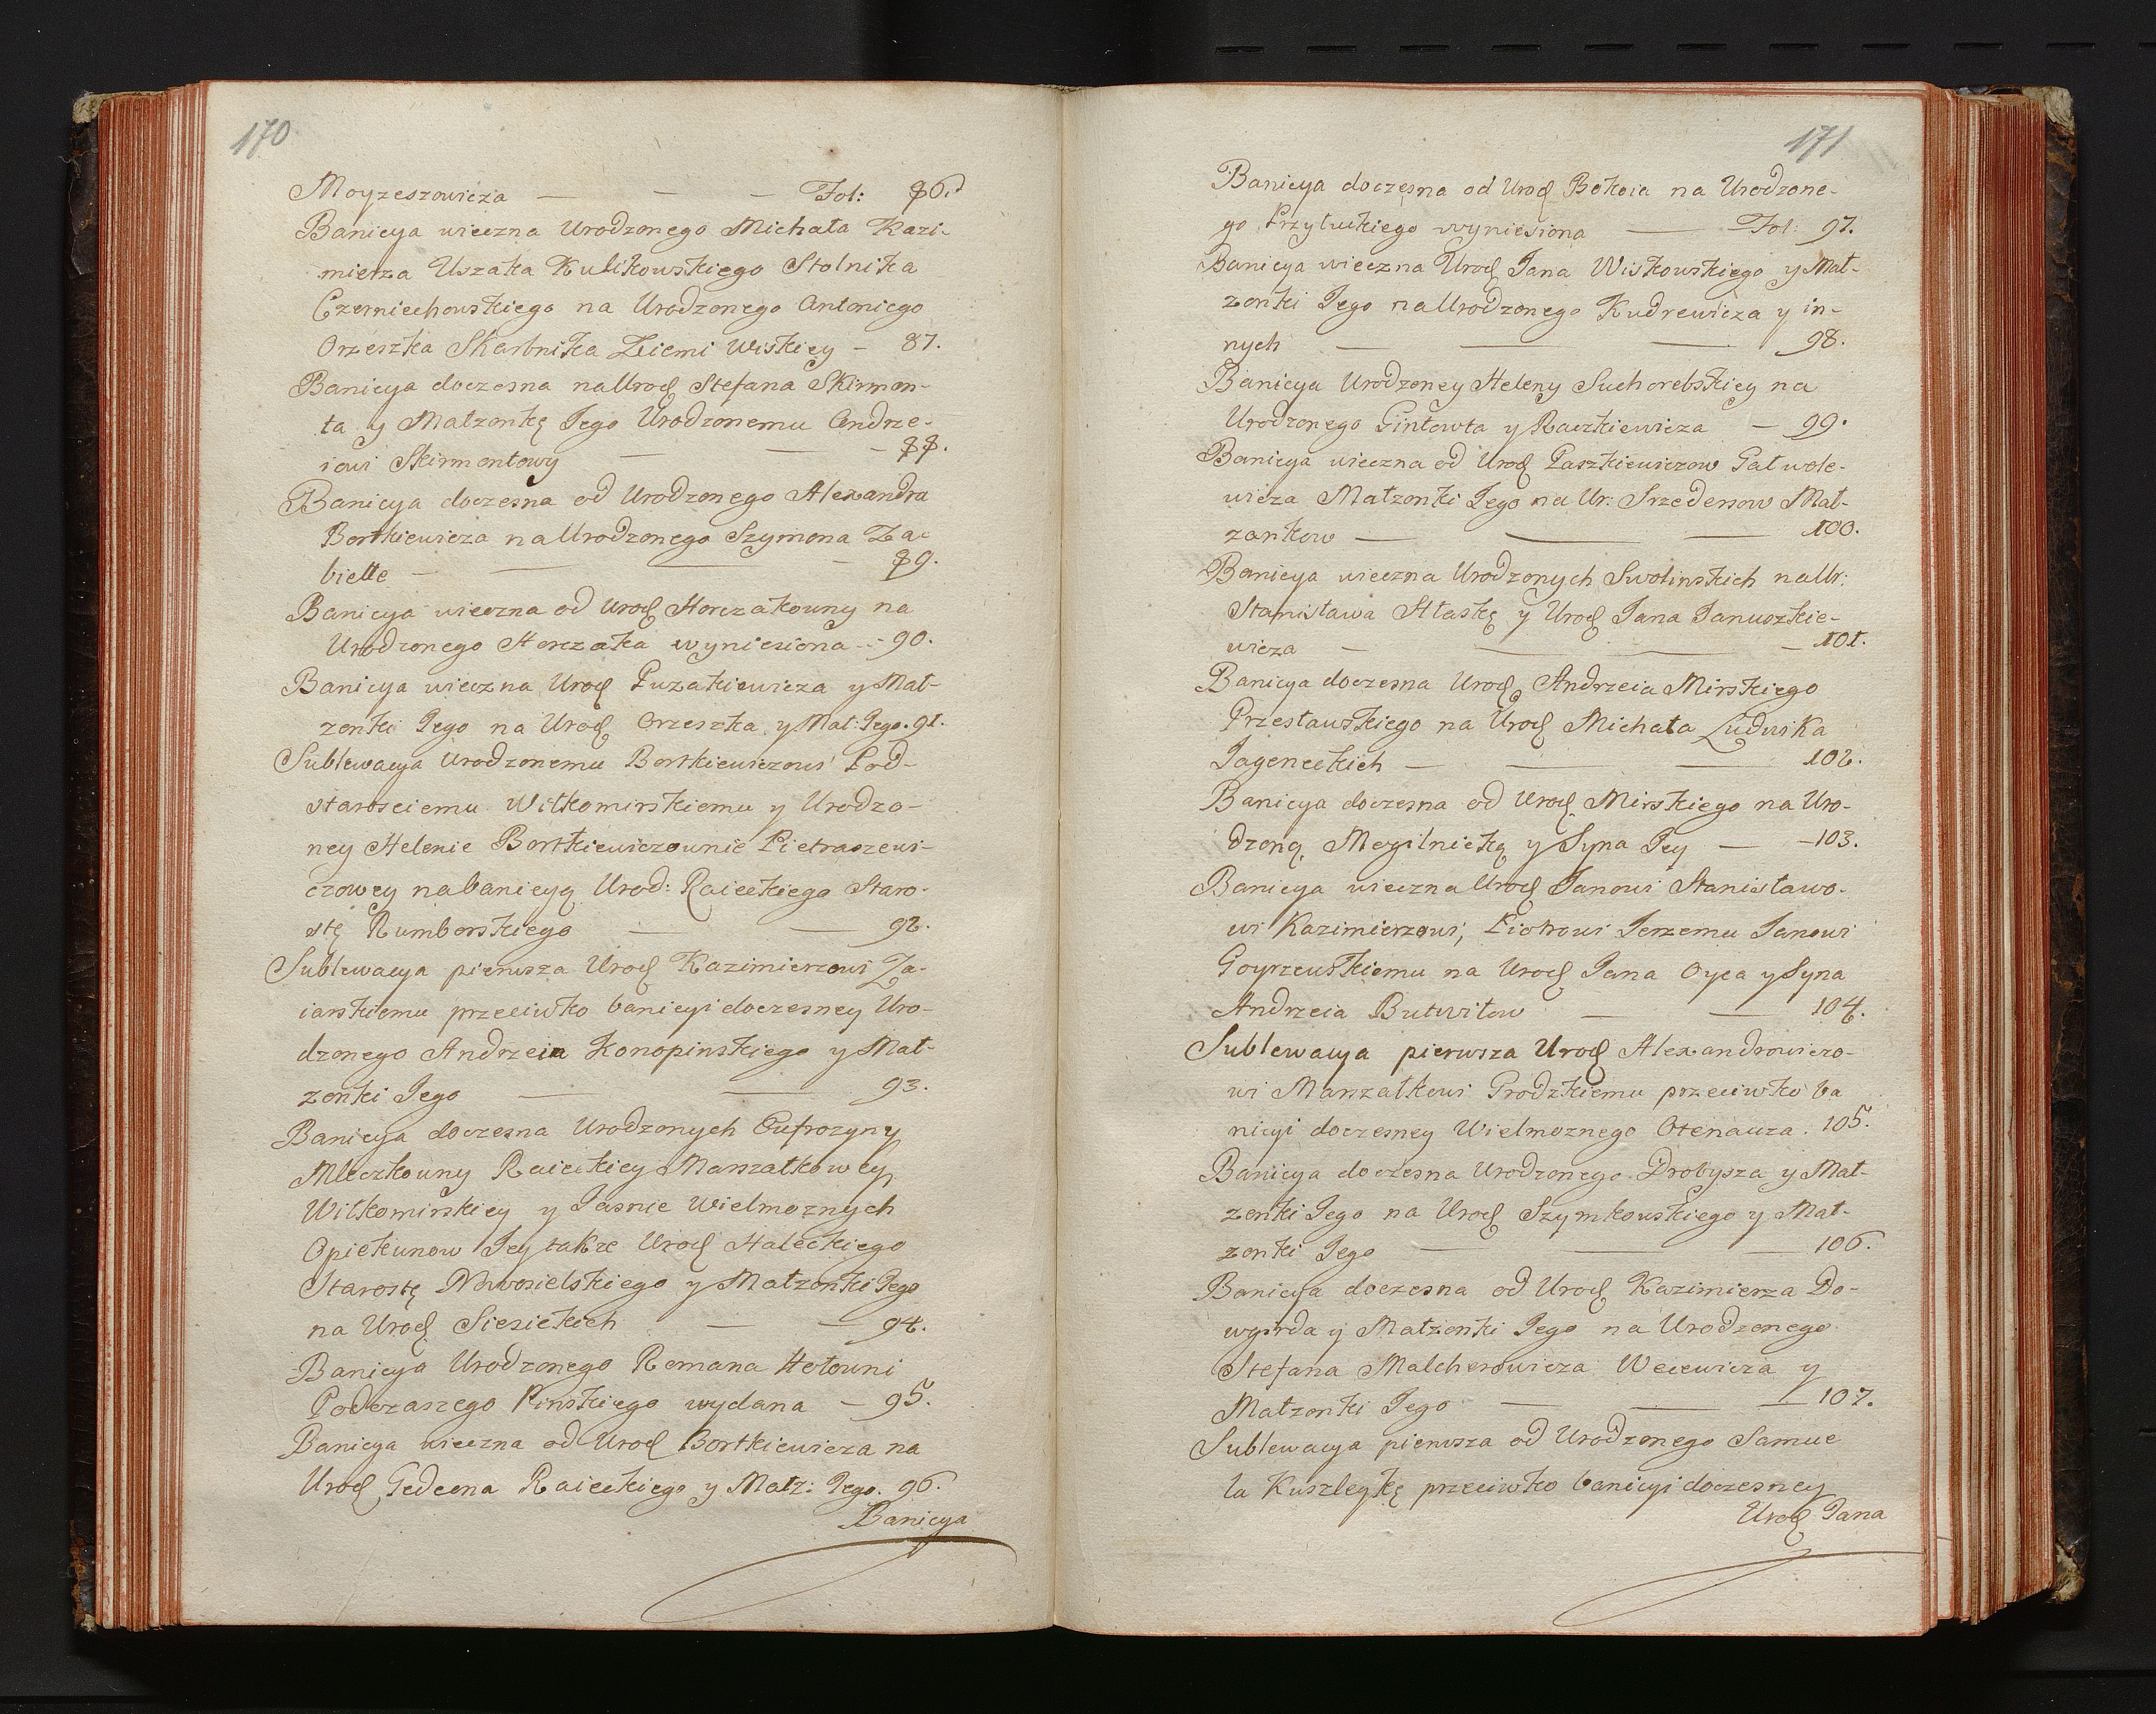 170
Moyzeszowicza — — — Fol: 86.
Banicya wieczna Urodzonego Michała Kazi-
mierza Uszaka Kulikowskiego Stolnika
Czerniechowskiego na Urodzonego Antoniego
Orzeszka Skarbnika Ziemi Wiskiey — 87.
Banicya doczesna na Urod Stefana Skirmon-
ta y Małzonkę Jego Urodzonemu Andrze-
iowi Skirmontowy — — — 88.
Banicya doczesna od Urodzonego Alexandra
Bortkiewicza na Urodzonego Szymona Za-
biełłe — — — — 89.
Banicya wieczna od Urod Horczakowny na
Urodzonego Horczaka wyniesiona - 90.
Banicya wieczna Urod Puzakiewicza y Mał-
zonki Jego na Urod Orzeszka y Mał: Jego. 91.
Sublewacya Urodzonemu Bortkiewiczowi Pod-
starosciemu Wiłkomirskiemu y Urodzo-
ney Helenie Bortkiewiczownie Pietraszewi-
czowey na banicyą Urod: Raieckiego Staro-
stę Rumborskiego — — 92.
Sublewacya pierwsza Urod Kazimierzowi Za-
iarskiemu przeciwko banicyi doczesney Uro-
dzonego Andrzeia Konopinskiego y Mał-
zonki Jego — — 93.
Banicya doczesna Urodzonych Eufrozyny
Mleczkowny Raieckiey Marszałkowey
Wiłkomirskiey y Jasnie Wielmoznych
Opiekunow Jey takze Urod Haleckiego
Starostę Nowosielskiego y Małzonki Jego
na Urod Siesickich — — 94.
Banicya Urodzonego Romana Hołowni
Podczaszego Pinskiego wydana — 95.
Banicya wieczna od Urod Bortkiewicza na
Urod Gedeona Raieckiego y Małz: Jego. 96.
Banicya
171
Banicya doczesna od Urod Bokoia na Urodzone-
go Przyłuckiego wyniesiona — Fol: 97.
Banicya wieczna Urod Jana Wiskowskiego y Mał-
zonki Jego na Urodzonego Kudrewicza y in-
nych — — — 98.
Banicya Urodzoney Heleny Suchorebskiey na
Urodzonego Gintowta y Raczkiewicza — 99.
Banicya wieczna od Urod Paszkiewiczow Gatwole-
wicza Małzonki Jego na Ur: Srzedersow Mał-
zonkow — — — 100.
Banicya wieczna Urodzonych Swolinskich na Ur:
Stanisława Hłaskę y Urod Jana Januszkie-
wicza — — — — 101.
Banicya doczesna Urod Andrzeia Mirskiego
Przesławskiego na Urod Michała Ludwika
Jageneckich — — — 102.
Banicya doczesna od Urod Mirskiego na Uro-
dzoną Mogilnicką y Syna Jey — — 103.
Banicya wieczna Urod Janowi Stanisławo-
wi Kazimierzowi, Piotrowi Jerzemu Janowi
Goyrzewskiemu na Urod Jana Oyca y Syna
Andrzeia Butwiłow — — 104.
Sublewacya pierwsza Urod Alexandrowiczo-
wi Marszałkowi Grodzkiemu przeciwko ba
nicyi doczesney Wielmoznego Otenauza. 105.
Banicya doczesna Urodzonego Drobysza y Mał-
zonki Jego na Urod Szymkowskiego y Mał-
zonki Jego — — — 106.
Banicya doczesna od Urod Kazimierza Do-
wgirda y Małzonki Jego na Urodzonego
Stefana Malcherowicza Wecewicza y
Małzonki Jego — — — 107.
Sublewacya pierwsza od Urodzonego Samue
la Kuszleykę przeciwko banicyi doczesney
Urod Jana